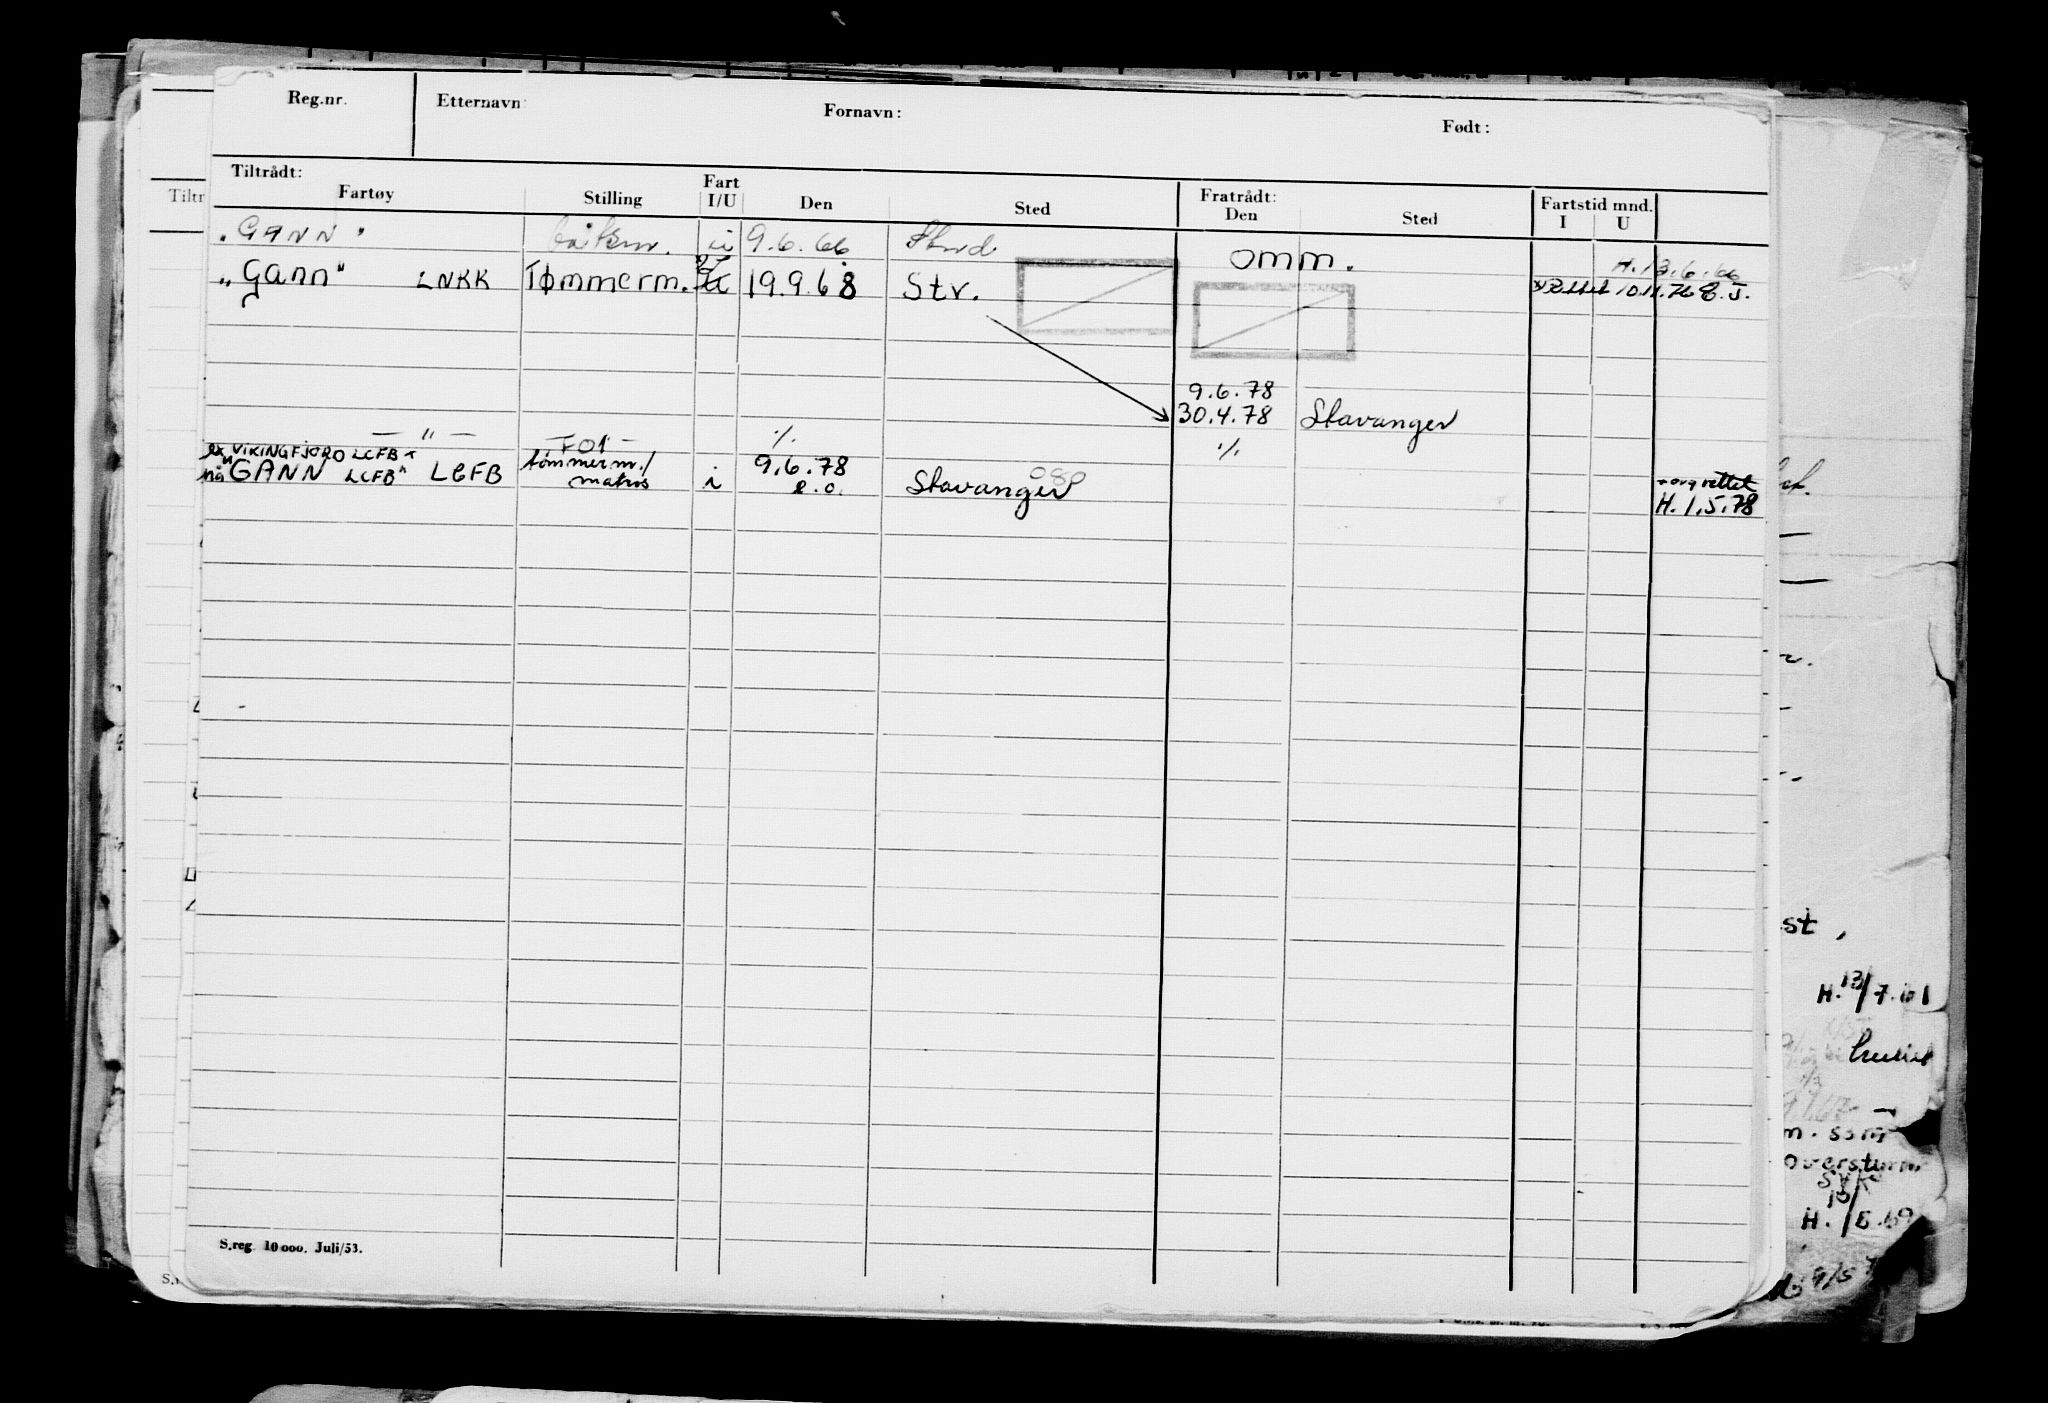 Reg.nr. Etternavn: Fornavn: Født:
Tiltrådt: Fratrådt:
Fartøy Stilling Fart I/U Den Sted Den Sted Fartstid mnd. I U
„GANN" båtsm. u 9.6.66 omm. H. 13.6.66
„Gann" LNKK Tømmerm. 19.9.68 Str. 10.11.76 E.J.
9.6.78
30.4.78 Stavanger
— " — — FOT — ·/· ·/·
ex VIKINGFJORD LCFB
nå "GANN LCFB" LCFB tømmerm./ matros i 9.6.78 e.o. Stavanger 080 rettet
H. 1.5.78
S.reg. 10 000. Juli/53.
Tiltr
st,
H. 13/7.61
m. som
overstyrm.
H. /8.69
9/5